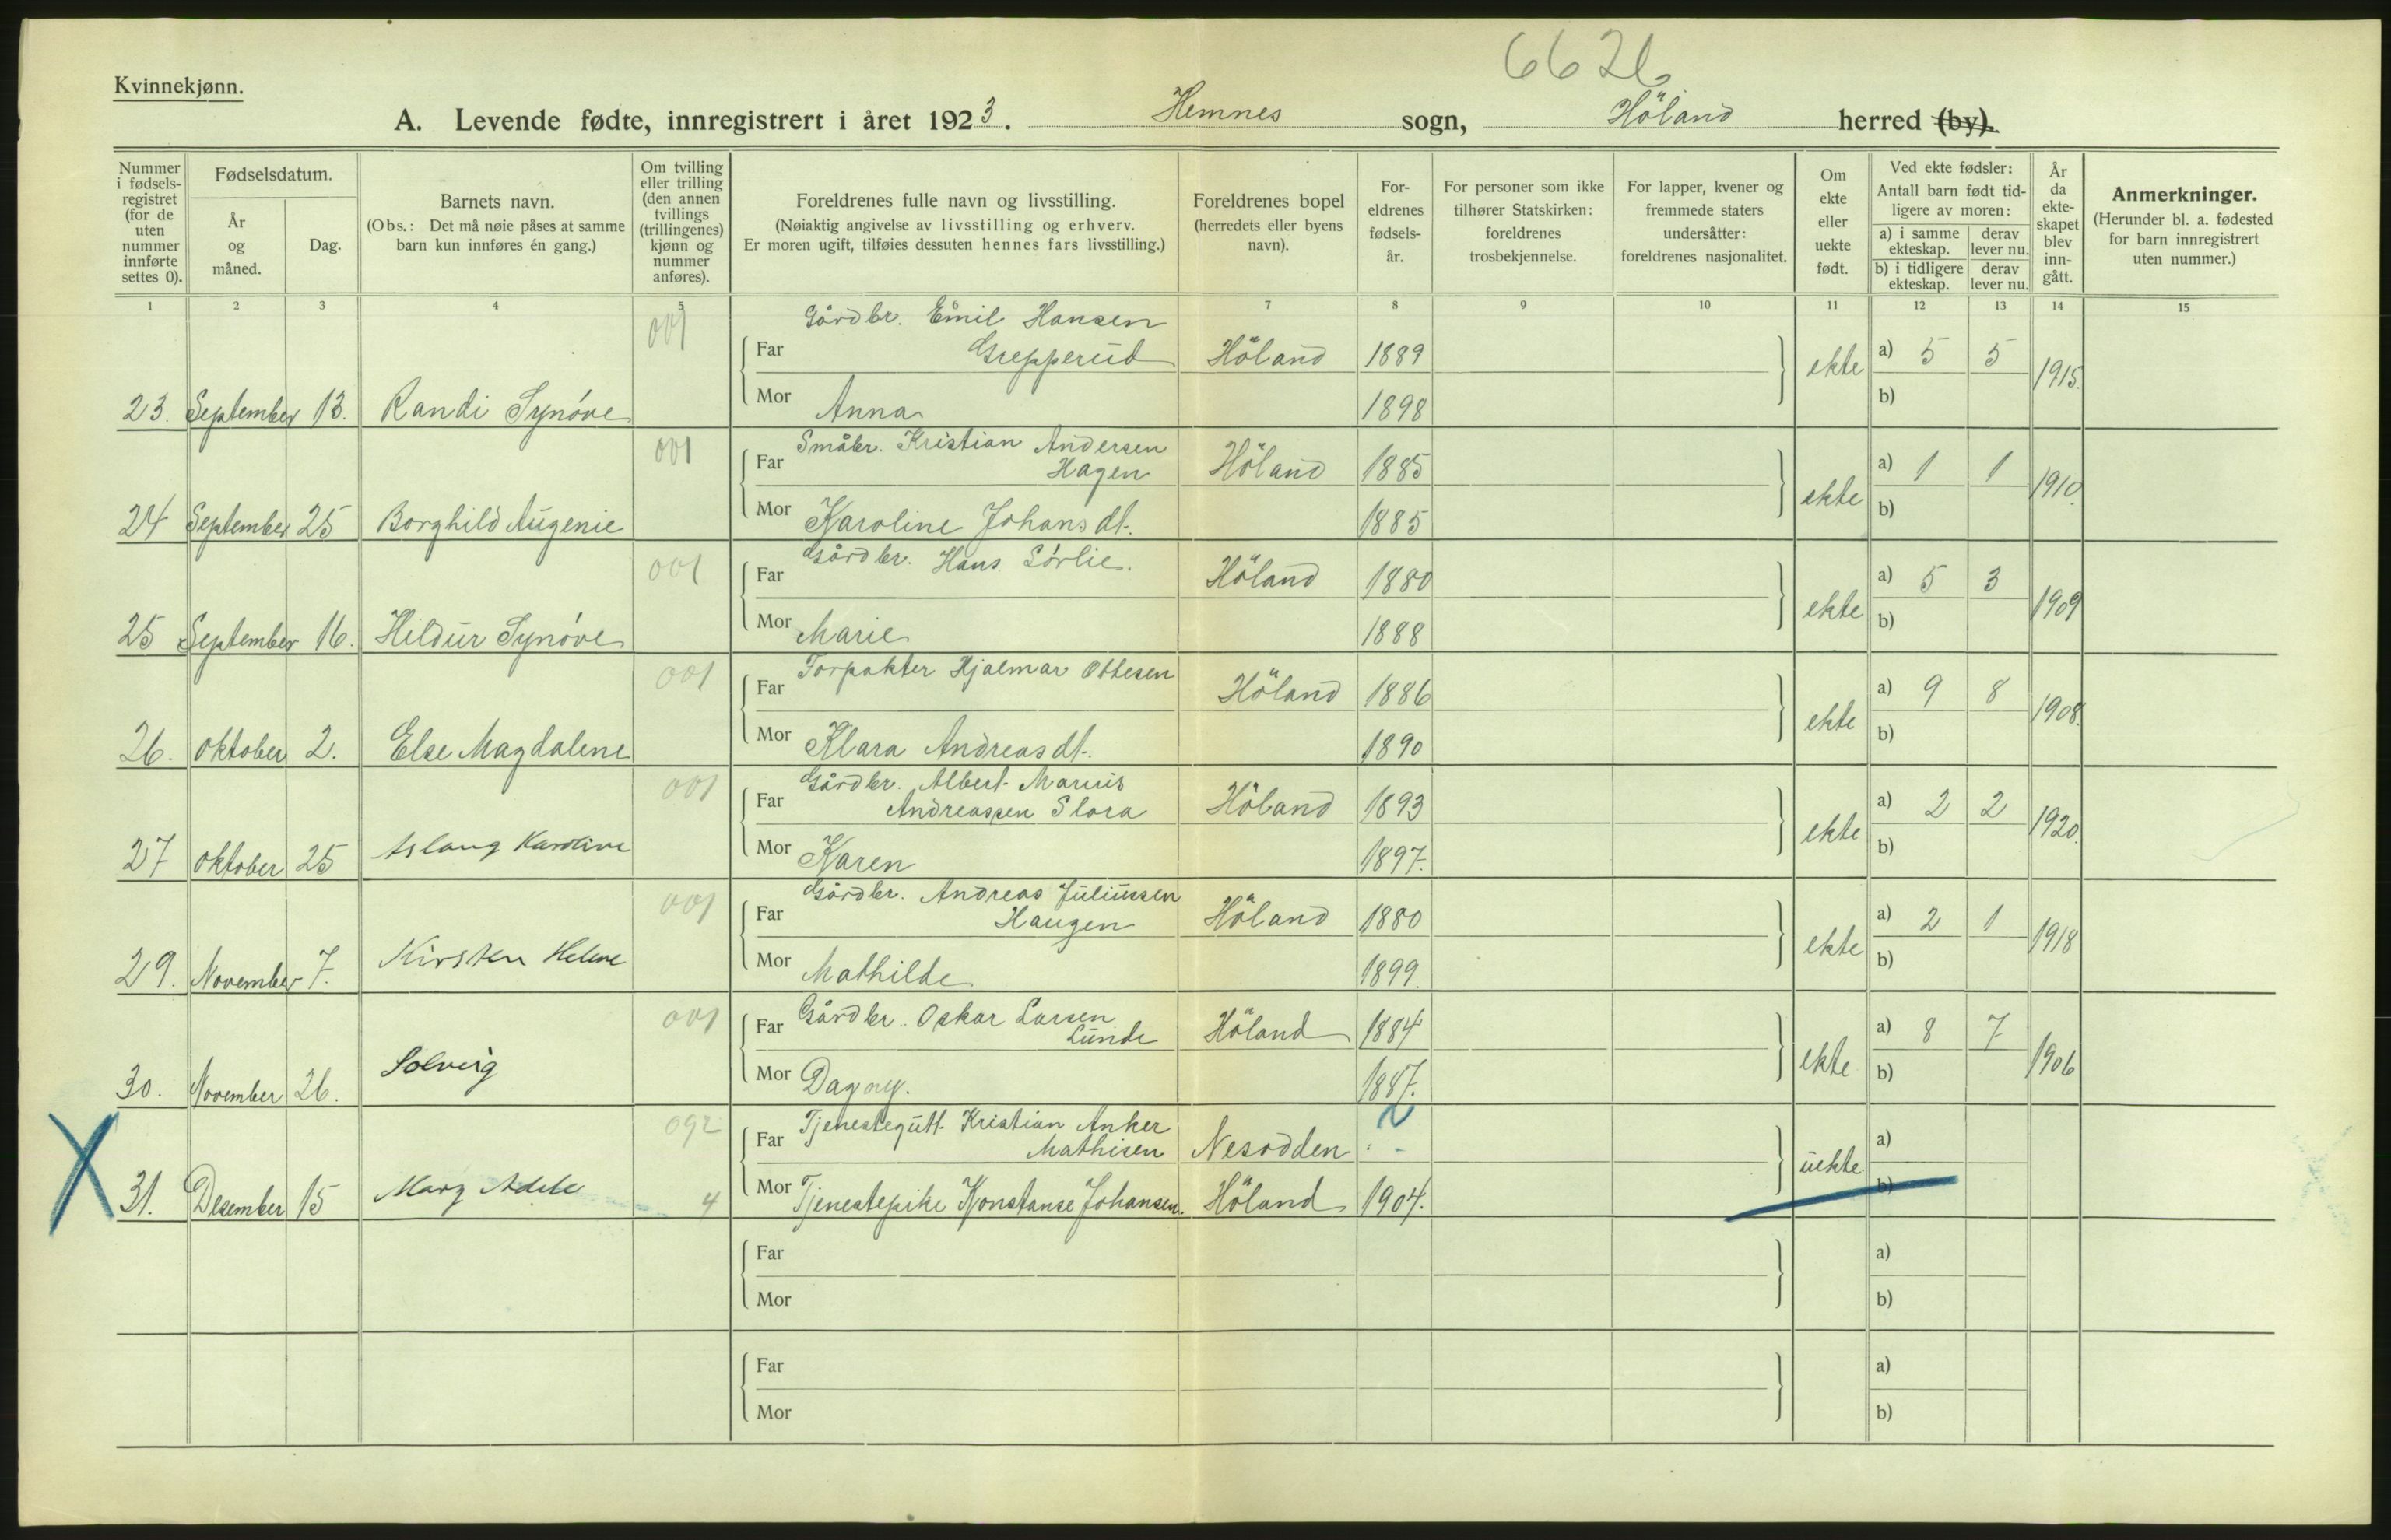 6626
Kvinnekjønn.
A. Levende fødte, innregistrert i året 1923. Hemnes sogn, Höland herred (by).
Nummer i fødsels-registret (for de uten nummer innførte settes 0).
Fødselsdatum.
År og måned.
Dag.
Barnets navn.
(Obs.: Det må nøie påses at samme barn kun innføres én gang.)
Om tvilling eller trilling (den annen tvillings (trillingenes) kjønn og nummer anføres).
Foreldrenes fulle navn og livsstilling.
(Nøiaktig angivelse av livsstilling og erhverv.
Er moren ugift, tilføies dessuten hennes fars livsstilling.)
Foreldrenes bopel (herredets eller byens navn).
For-eldrenes fødsels-år.
For personer som ikke tilhører Statskirken: foreldrenes trosbekjennelse.
For lapper, kvener og fremmede staters undersåtter: foreldrenes nasjonalitet.
Om ekte eller uekte født.
Ved ekte fødsler:
Antall barn født tid-ligere av moren:
a) i samme ekteskap. derav lever nu.
b) i tidligere ekteskap. derav lever nu.
År da ekte-skapet blev inn-gått.
Anmerkninger.
(Herunder bl. a. fødested for barn innregistrert uten nummer.)
1 2 3 4 5 7 8 9 10 11 12 13 14 15
001 Gårdbr. Emil Hansen
Far Grepperud Höland 1889 ekte a) 5 5 1915.
23. September 13. Randi Synóve Mor Anna 1898 b)
001 Småbr. Kristian Andersen
Far Hagen Höland 1885 ekte a) 1 1 1910.
24 September 25 Borghild Augenie Mor Karoline Johansdt. 1885 b)
001 Far Gårdbr. Hans Sörlie. Höland 1880 ekte a) 5 3 1909
25 September 16. Hildur Synóve Mor Marie 1888 b)
001 Far Forpakter Hjalmar Ottesen Höland 1886 ekte a) 9 8 1908.
26. Oktober 2. Else Magdalene Mor Klara Andreasdt. 1890 b)
001 Gårdbr. Albert Marius
Far Andreassen Slora Höland 1893 ekte a) 2 2 1920.
27 Oktober 25 Aslaug Karoline Mor Karen 1897. b)
001 Gårdbr. Andreas Juliussen
Far Haugen Höland 1880 ekte a) 2 1 1918
29. November 7. Kirsten Helene Mor Mathilde 1899. b)
001 Gårdbr. Oskar Larsen
Far Lunde Höland 1884 ekte a) 8 7 1906
30. November 26. Solveig Mor Dagny. 1887. b)
092 Tjenestegutt Kristian Anker 2
Far Mathisen Nesodden - uekte a)
X 31. Desember 15 Mary Adele 4 Mor Tjenestepike Konstanse Johansen. Höland 1904. b)
Far a)
Mor b)
Far a)
Mor b)